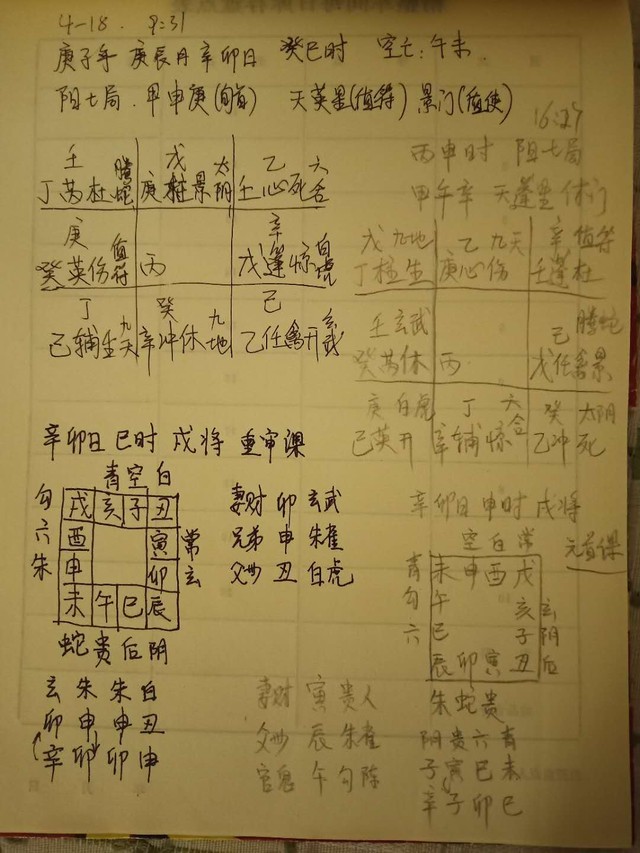 4-18. 9:31
庚子年 庚辰月 辛卯日 癸巳时 空亡:午未.
阳七局. 甲申庚(旬首) 天英星(值符) 景门(值使)
壬 螣蛇 戊 太阴 乙 六合
丁芮杜 庚柱景 壬心死
庚 值符 辛 白虎
癸英伤 丙 戊蓬惊
丁 九天 癸 九地 己 玄武
己辅生 辛冲休 乙任禽开
16:27
丙申时 阳七局
甲午辛 天蓬星 休门
戊 九地 乙 九天 辛 值符
丁柱生 庚心伤 壬蓬杜
壬 玄武 己 螣蛇
癸芮休 丙 戊任禽景
庚 白虎 丁 六合 癸 太阴
己英开 辛辅惊 乙冲死
辛卯日 巳时 戌将 重审课
青空白
勾 戌亥子丑
六 酉 寅 常
朱 申 卯 玄
未午巳辰
蛇贵后阴
妻财 卯 玄武
兄弟 申 朱雀
父母 丑 白虎
玄朱朱白
卯申申丑
辛卯卯申
辛卯日 申时 戌将
元首课
空白常
青 未申酉戌
勾 午 亥 玄
六 巳 子 阴
辰卯寅丑 后
朱蛇贵
妻财 寅 贵人
父母 辰 朱雀
官鬼 午 勾陈
阴贵六青
子寅巳未
辛子卯巳